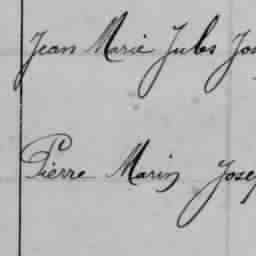 Jean Marie Jules Jos
Pierre Marin Josep